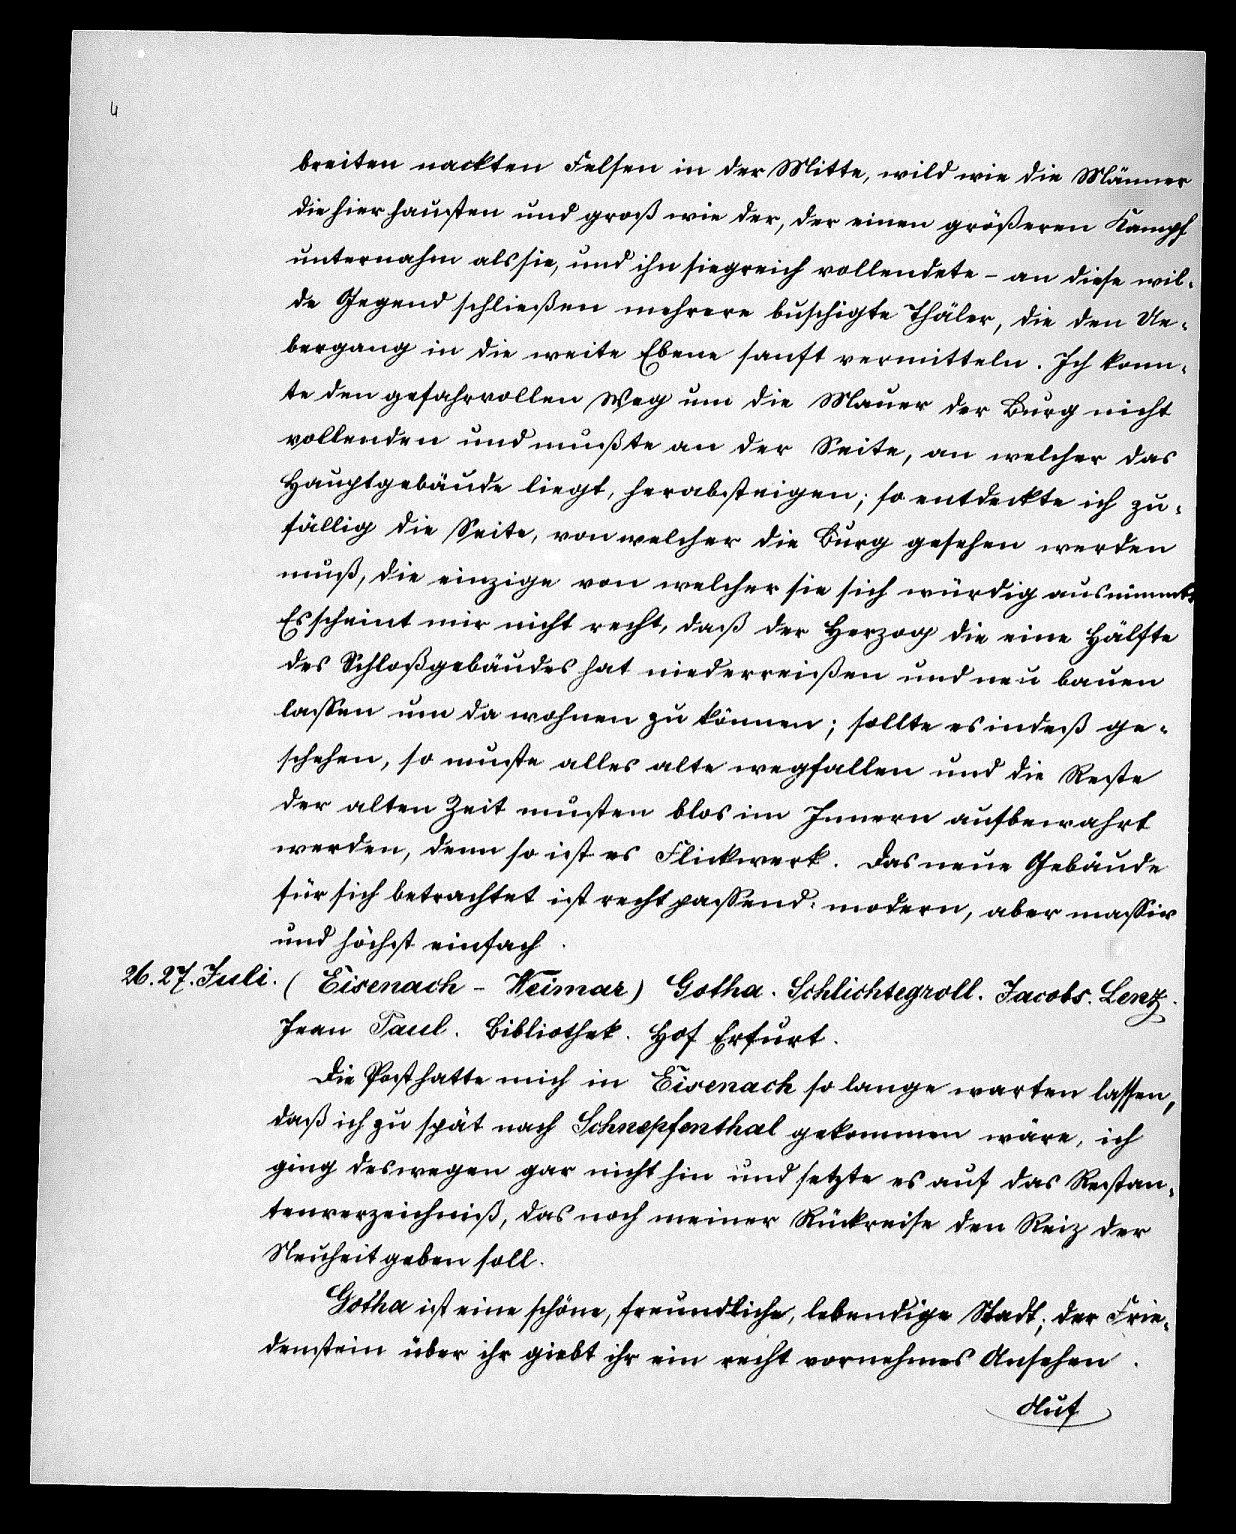 4
breiten nackten Felsen in der Mitte, wild wie die Männer
die hier hausten und groß wie der, der einen größeren Kampf
unternahm als sie, und ihn siegreich vollendete – an diese wil-
de Gegend schließen mehrere buschigte Thäler, die den Ue-
bergang in die weite Ebene sanft vermitteln. Ich konn-
te den gefahrvollen Weg um die Mauer der Burg nicht
vollenden und mußte an der Seite, an welcher das
Hauptgebäude liegt, herabsteigen; so entdeckte ich zu-
fällig die Seite, von welcher die Burg gesehen werden
muß, die einzige von welcher sie sich würdig ausnimmt.
Es scheint mir nicht recht, daß der Herzog die eine Hälfte
des Schloßgebäudes hat niederreißen und neu bauen
lassen um da wohnen zu können; sollte es indeß ge-
schehen, so muste alles alte wegfallen und die Reste
der alten Zeit musten blos im Innern aufbewahrt
werden, denn so ist es Flickwerk. Das neue Gebäude
für sich betrachtet ist recht passend: modern, aber massiv
und höchst einfach.
26. 27. Juli. (Eisenach – Weimar) Gotha. Schlichtegroll. Jacobs. Lenz.
Jean Paul. Bibliothek. Hof Erfurt.
Die Post hatte mich in Eisenach so lange warten lassen,
daß ich zu spät nach Schnepfenthal gekommen wäre, ich
ging deswegen gar nicht hin und setzte es auf das Restan-
tenverzeichniß, das noch meiner Rückreise den Reiz der
Neuheit geben soll.
Gotha ist eine schöne, freundliche, lebendige Stadt; der Frie-
denstein über ihr giebt ihr ein recht vornehmes Ansehen.
Auf